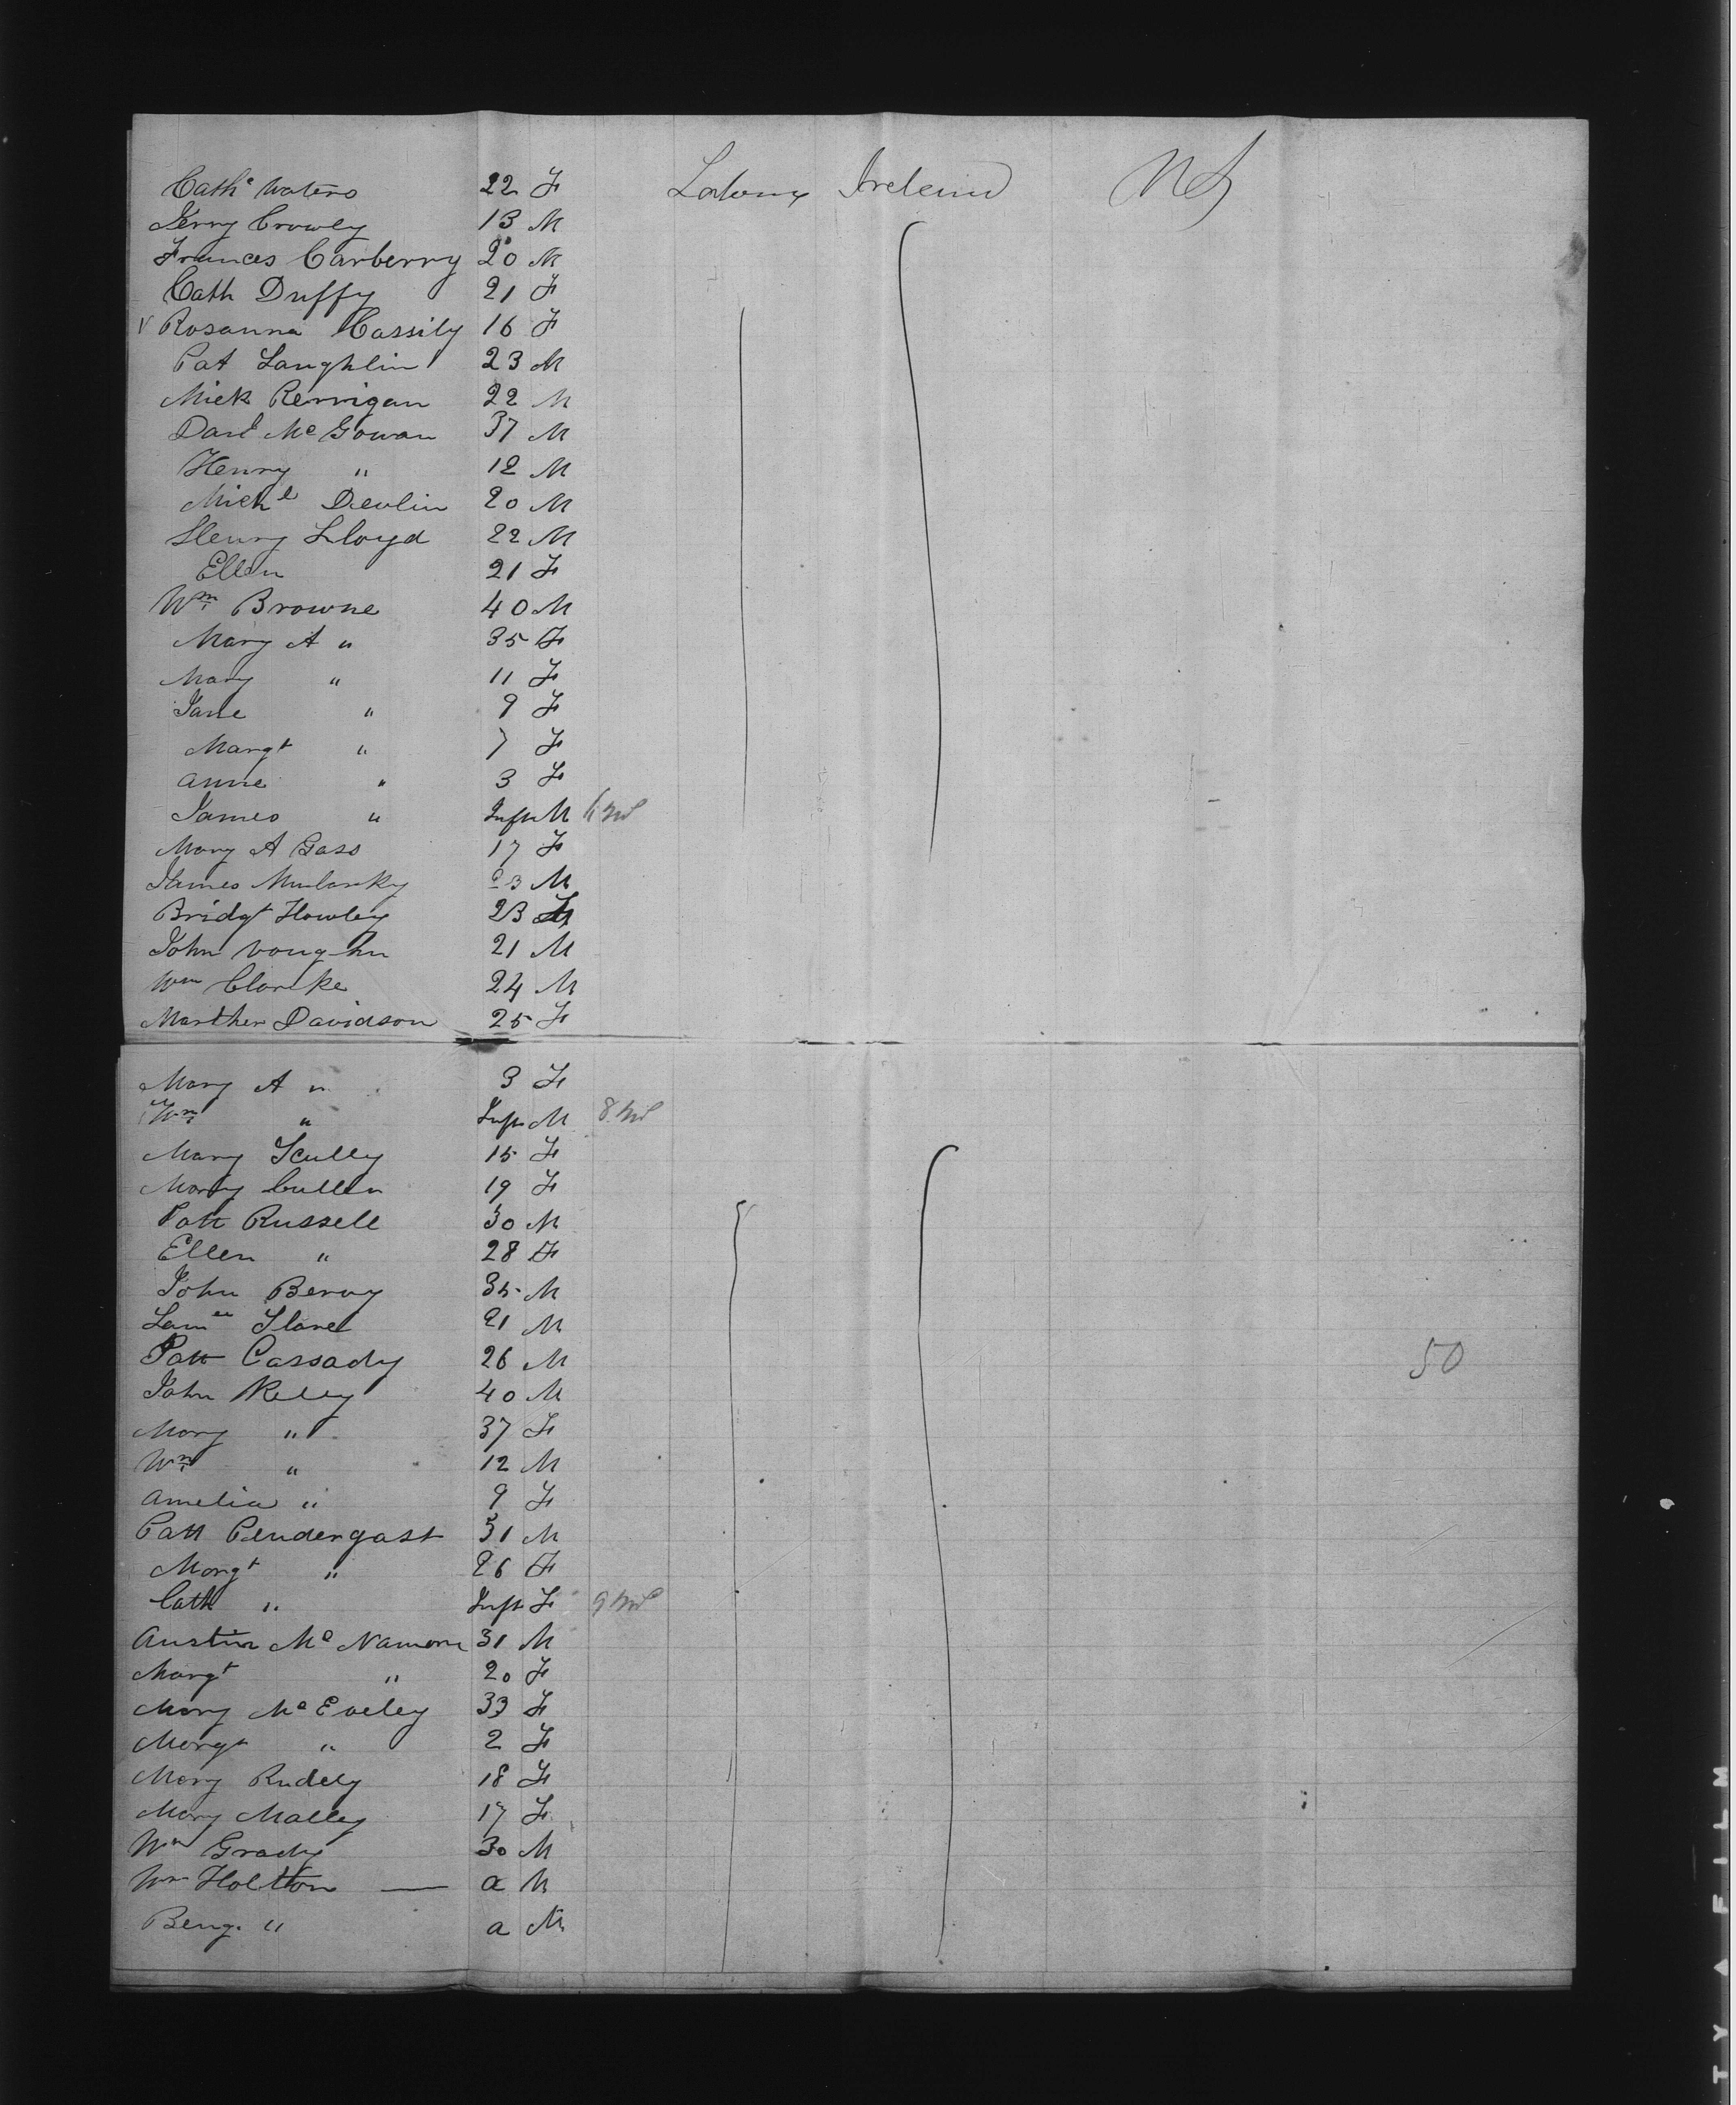 Cathe Waters 22 F Ireland
Jerry Crowley 13 M
Frances Carberry 20 M
Cath Duffy 21 F
Rosanna Cassily 16 F
Pat Laughlin 23 M
Mick Kerrigan 22 M
Danl Mc Gowan 37 M
Henry " 12 M
Michl Devlin 20 M
Henry Lloyd 22 M
Ellen 21 F
Wm Browne 40 M
Mary A " 35 F
Mary " 11 F
Jane " 9 F
Margt " 7 F
Anne " 3 F
James " Inft M
Mary A Gass 17 F
James Mularky 23 M
Bridgt Howley 23 F
John Voughn 21 M
Wm Clarke 24 M
Marther Davidson 25 F
Mary A " 3 F
Wm " Inft M 8
Mary Scully 15 F
Mary Cullen 19 F
Patt Russell 30 M
Ellen " 28 F
John Berry 35 M
21 M
Patt Cassady 26 M 50
John Kelly 40 M
Mary " 37 F
Wm " 12 M
Amelia " 9 F
Patt Pendergast 31 M
Margt " 26 F
Cath " Inft F 9
Austin Mc Namara 31 M
Margt " 20 F
Mary Mc Eveley 33 F
Margt " 2 F
Mary 18 F
Mary Malley 17 F
Wm Grady 30 M
Wm Holtton — a M
Benj. " a M
TY A FILM